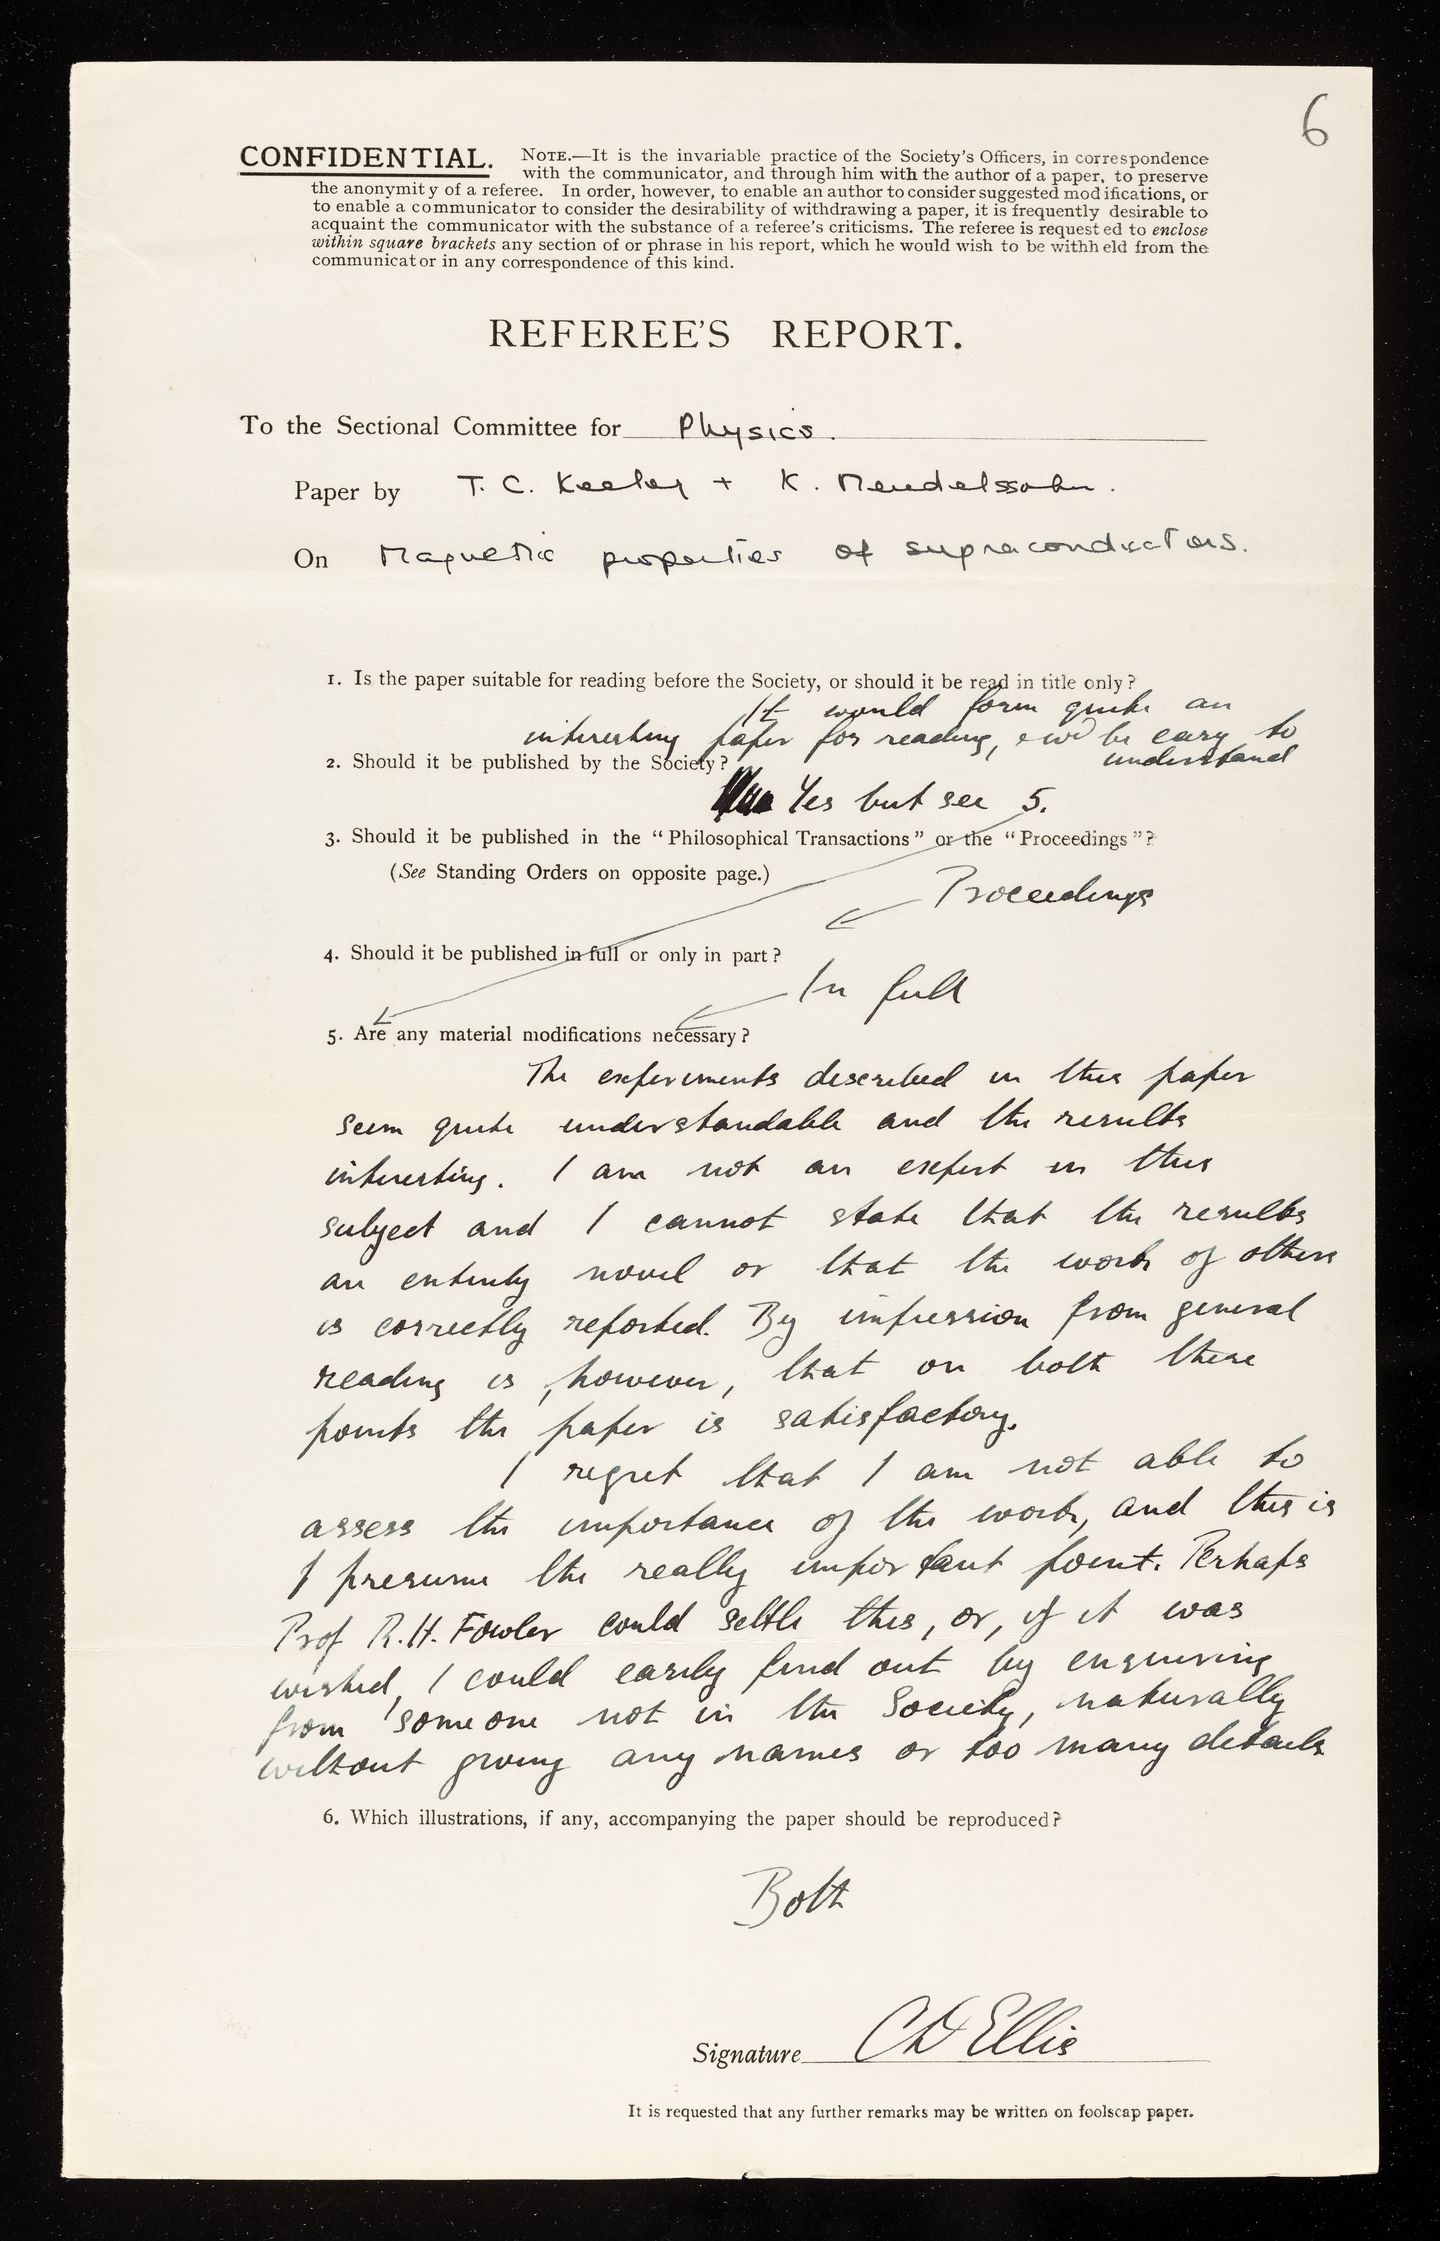 6
CONFIDENTIAL. NOTE.—It is the invariable practice of the Society's Officers, in correspondence
with the communicator, and through him with the author of a paper, to preserve
the anonymity of a referee. In order, however, to enable an author to consider suggested modifications, or
to enable a communicator to consider the desirability of withdrawing a paper, it is frequently desirable to
acquaint the communicator with the substance of a referee's criticisms. The referee is requested to enclose
within square brackets any section of or phrase in his report, which he would wish to be withheld from the
communicator in any correspondence of this kind.
REFEREE'S REPORT.
To the Sectional Committee for Physics.
Paper by T. C. Keeley + K. Mendelssohn.
On Magnetic properties of supraconductors.
1. Is the paper suitable for reading before the Society, or should it be read in title only?
It would form quite an
interesting paper for reading, & wd be easy to
understand
2. Should it be published by the Society?
Yes but see 5.
3. Should it be published in the "Philosophical Transactions" or the "Proceedings"?
(See Standing Orders on opposite page.)
Proceedings
4. Should it be published in full or only in part?
In full
5. Are any material modifications necessary?
The experiments described in this paper
seem quite understandable and the results
interesting. I am not an expert in this
subject and I cannot state that the results
are entirely novel or that the work of others
is correctly reported. By impression from general
reading is, however, that on both these
points the paper is satisfactory.
I regret that I am not able to
assess the importance of the work, and this is
I presume the really important point. Perhaps
Prof R.H. Fowler could settle this, or, if it was
wished, I could easily find out by enquiring
from someone not in the Society, naturally
without giving any names or too many details
6. Which illustrations, if any, accompanying the paper should be reproduced?
Both
Signature CD Ellis
It is requested that any further remarks may be written on foolscap paper.